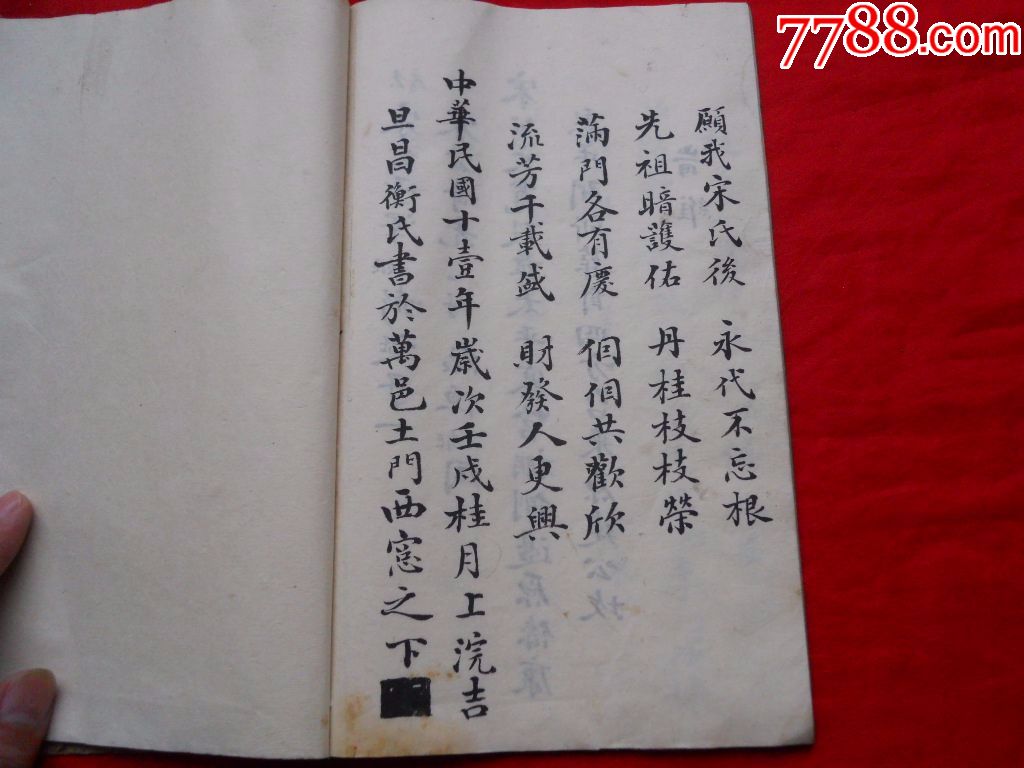 願我宋氏後 永代不忘根
先祖暗護佑 丹桂枝枝榮
滿門各有慶 個個共歡欣
流芳千載盛 財發人更興
中華民國十壹年歲次壬戍桂月上浣吉
旦昌衡氏書於萬邑土門西窓之下
7788.com